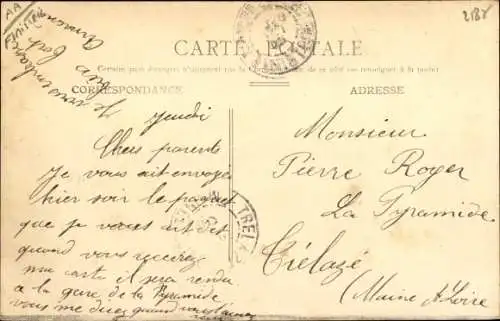 AA
2187
CARTE POSTALE
Certains pays étrangers n'acceptent pas la
CORRESPONDANCE
ADRESSE
Je vous embrasse
bien fort
Jeudi
Chers parents
Je vous ait envoyé
hier soir le paquet
que je vous ait dit
quand vous recevrez
ma carte il sera rendu
a la gare de la Pyramide
vous me direz quand vous
Monsieur
Pierre Roger
La Pyramide
Trélazé
(Maine & Loire
TRELAZ